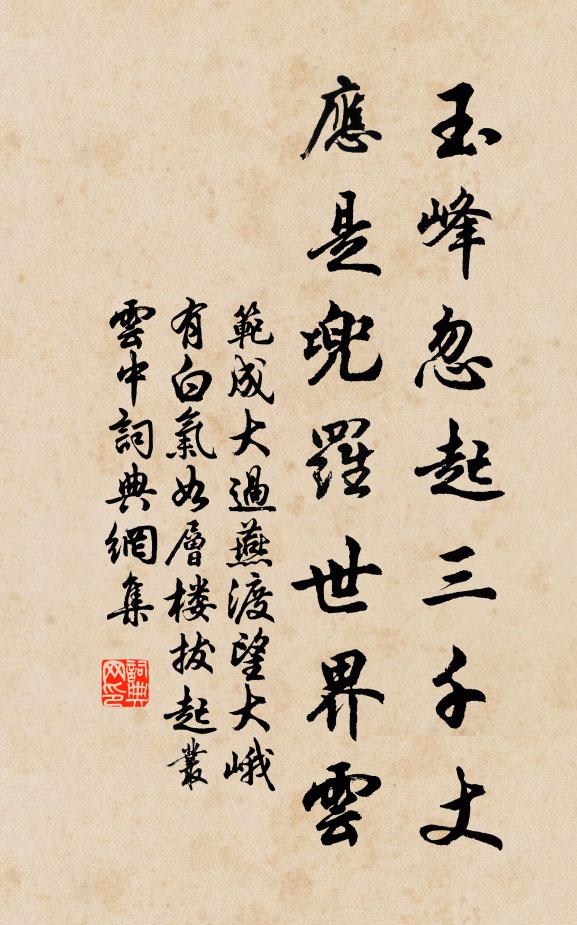 玉峰忽起三千丈
應是兜羅世界雲
範成大過燕渡望大峨
有白氣如層楼拔起叢
雲中詞典網集
詞典网印